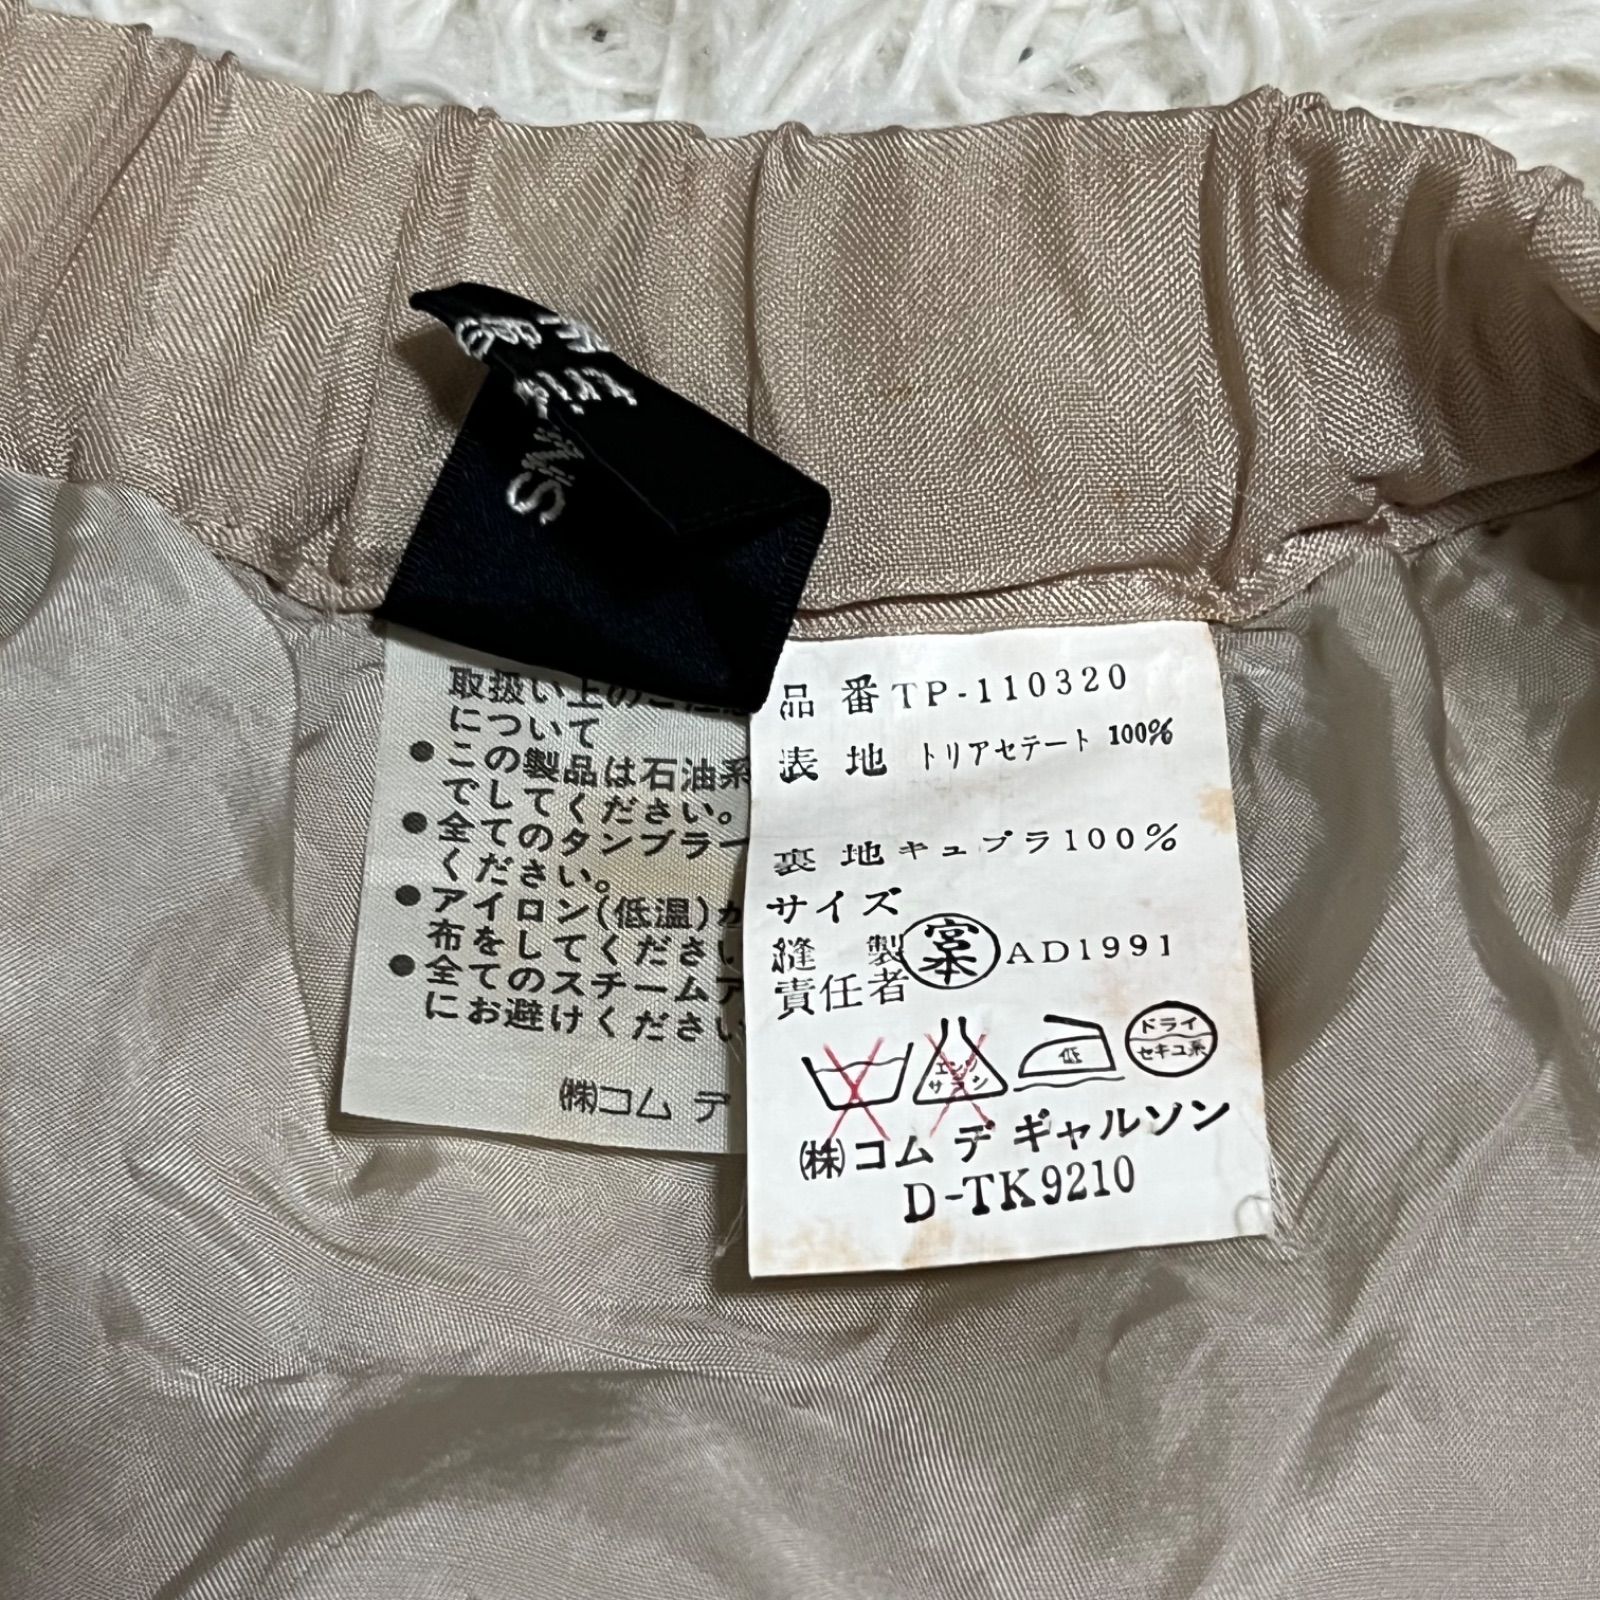 tric
取扱い上のご注意
について
●この製品は石油系
でしてください。
●全てのタンブラー
ください。
●アイロン(低温)か
布をしてください
●全てのスチームア
にお避けください
(株)コム デ
品番 TP-110320
表地 トリアセテート 100%
裏地 キュプラ100%
サイズ
縫製 宮本 AD1991
責任者
エンソ
サラシ
低
ドライ
セキユ系
(株)コム デ ギャルソン
D-TK9210